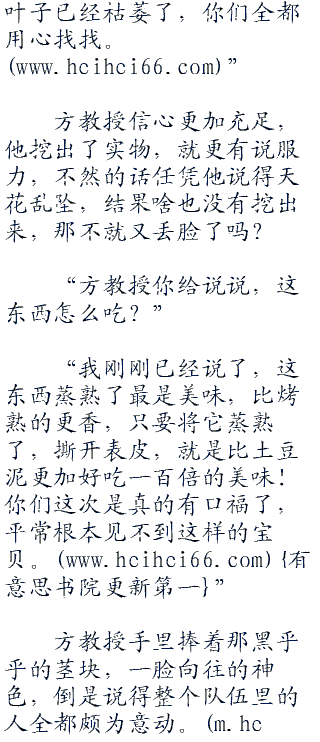 叶子已经枯萎了，你们全都
用心找找。
(www.hcihci66.com)”
方教授信心更加充足，
他挖出了实物，就更有说服
力，不然的话任凭他说得天
花乱坠，结果啥也没有挖出
来，那不就又丢脸了吗？
“方教授你给说说，这
东西怎么吃？”
“我刚刚已经说了，这
东西蒸熟了最是美味，比烤
熟的更香，只要将它蒸熟
了，撕开表皮，就是比土豆
泥更加好吃一百倍的美味！
你们这次是真的有口福了，
平常根本见不到这样的宝
贝。(www.hcihci66.com){有
意思书院更新第一}”
方教授手里捧着那黑乎
乎的茎块，一脸向往的神
色，倒是说得整个队伍里的
人全都颇为意动。(m.hc